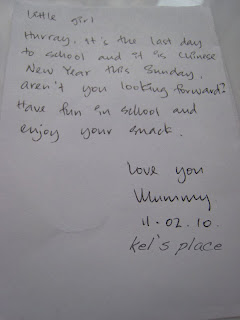 Little girl
Hurray, it's the last day
to school and it is Chinese
New Year this Sunday.
aren't you looking forward?
Have fun in school and
enjoy your snack.
Love you
Mummy
11.02.10.
kel's place